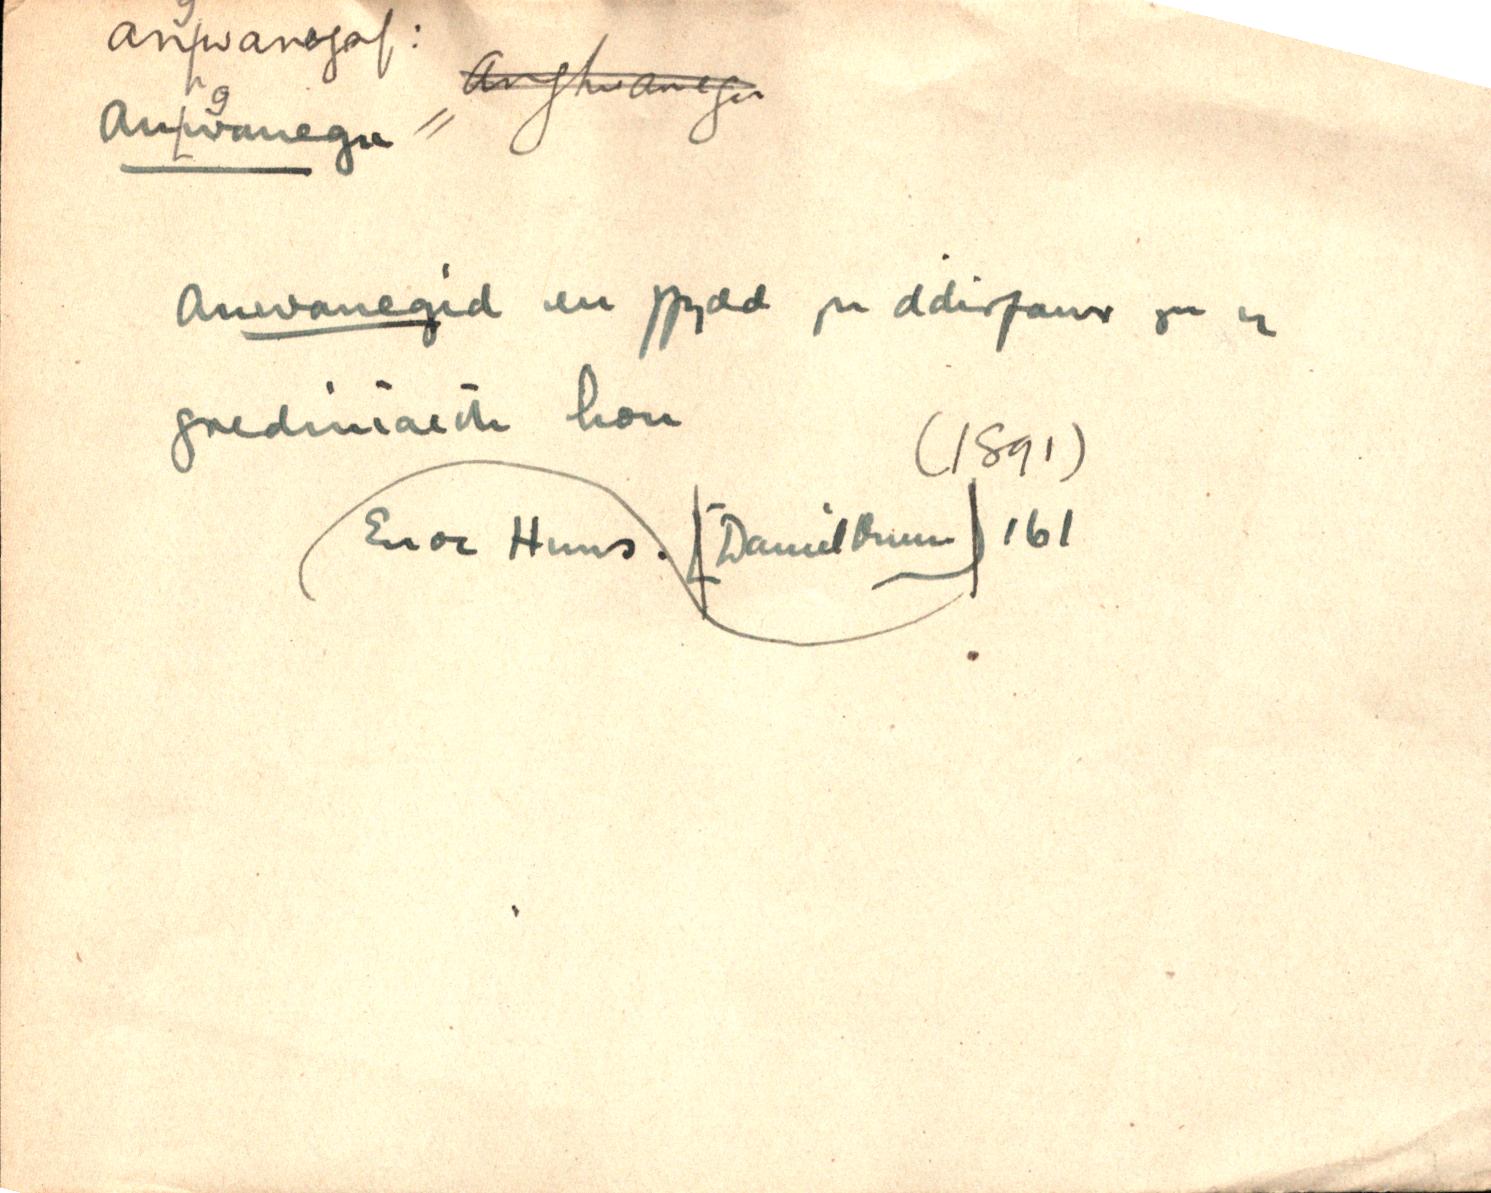 angwanegaf:
Angwanegu = Anghwanegu
Anwanegid eu ffydd yn ddirfawr yn y
grediniaeth hon
(1891)
Enoc Huws. [Daniel Owen] 161